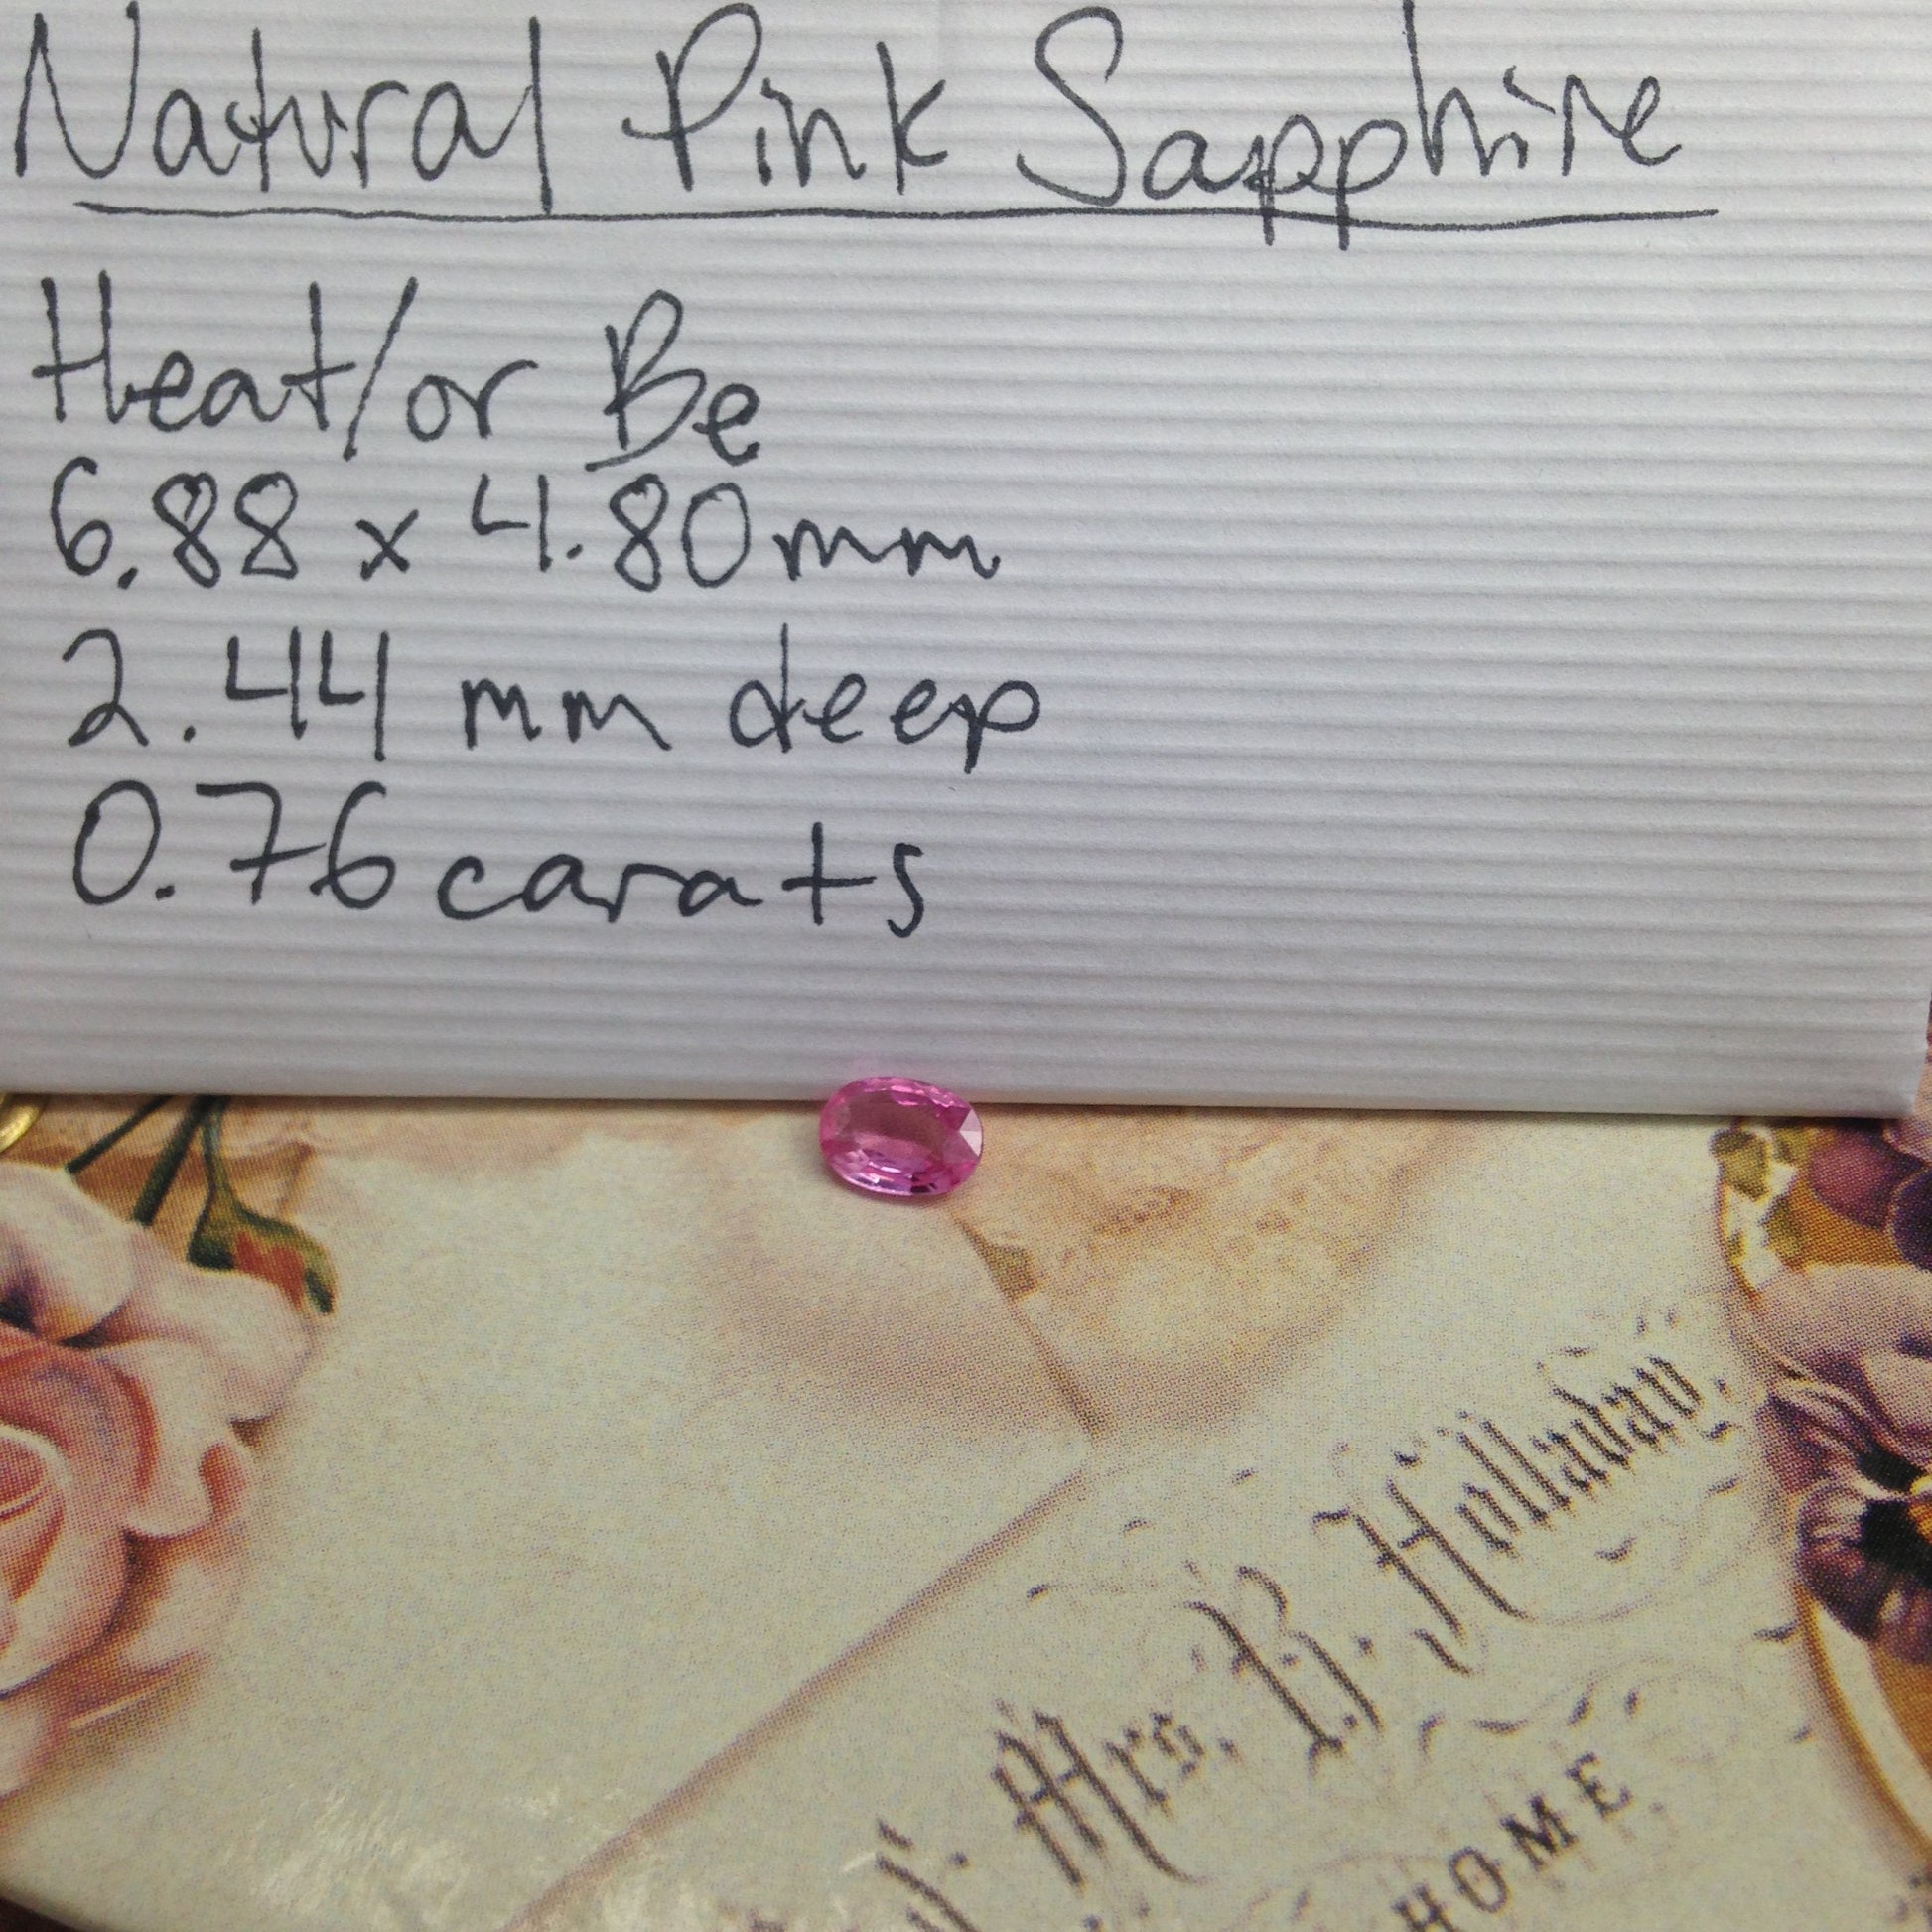 Natural Pink Sapphire
Heat/or Be
6.88 x 4.80mm
2.44 mm deep
0.76 carats
Mrs. B. Holladay.
HOME